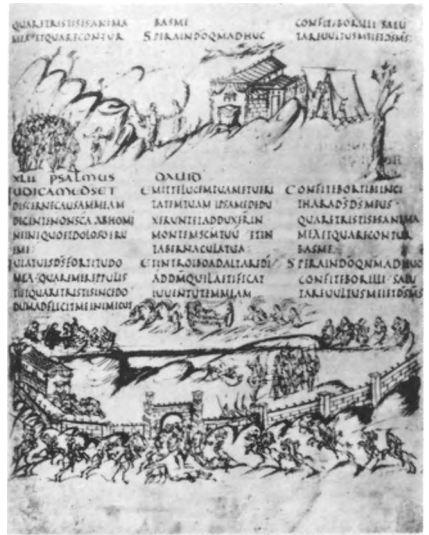 QUARETRISTISESANIMA
MEAETQUARECONTUR
BASME
SPERAINDOQNMADHUC
CONFITEBORILLI SALU
TAREUULTUSMEIETDSMS:
XLII PSALMUS DAUID
IUDICAMEDSET
DISCERNECAUSAMMEAM
DEGENTENONSCA ABHOMI
NEINIQUOETDOLOSOERU
EME:
QUIATUESDSFORTITUDO
MEA QUAREMEREPPULIS
TIETQUARETRISTISINCEDO
DUMADFLIGITMEINIMICUS
EMITTELUCEMTUAMETUERI
TATEMTUAM IPSAMEDEDU
XERUNTETADDUXER IN
MONTEMSCMTUU ETIN
TABERNACULATUA:
ETINTROIBOADALTAREDI
ADDMQUILAETIFICAT
IUUENTUTEMMEAM
CONFITEBORTIBIINCI
THARADSDSMEUS
QUARETRISTISESANIMA
MEAETQUARECONTUR
BASME
SPERAINDOQNMADHUC
CONFITEBORILLI SALU
TAREUULTUSMEIETDSMS